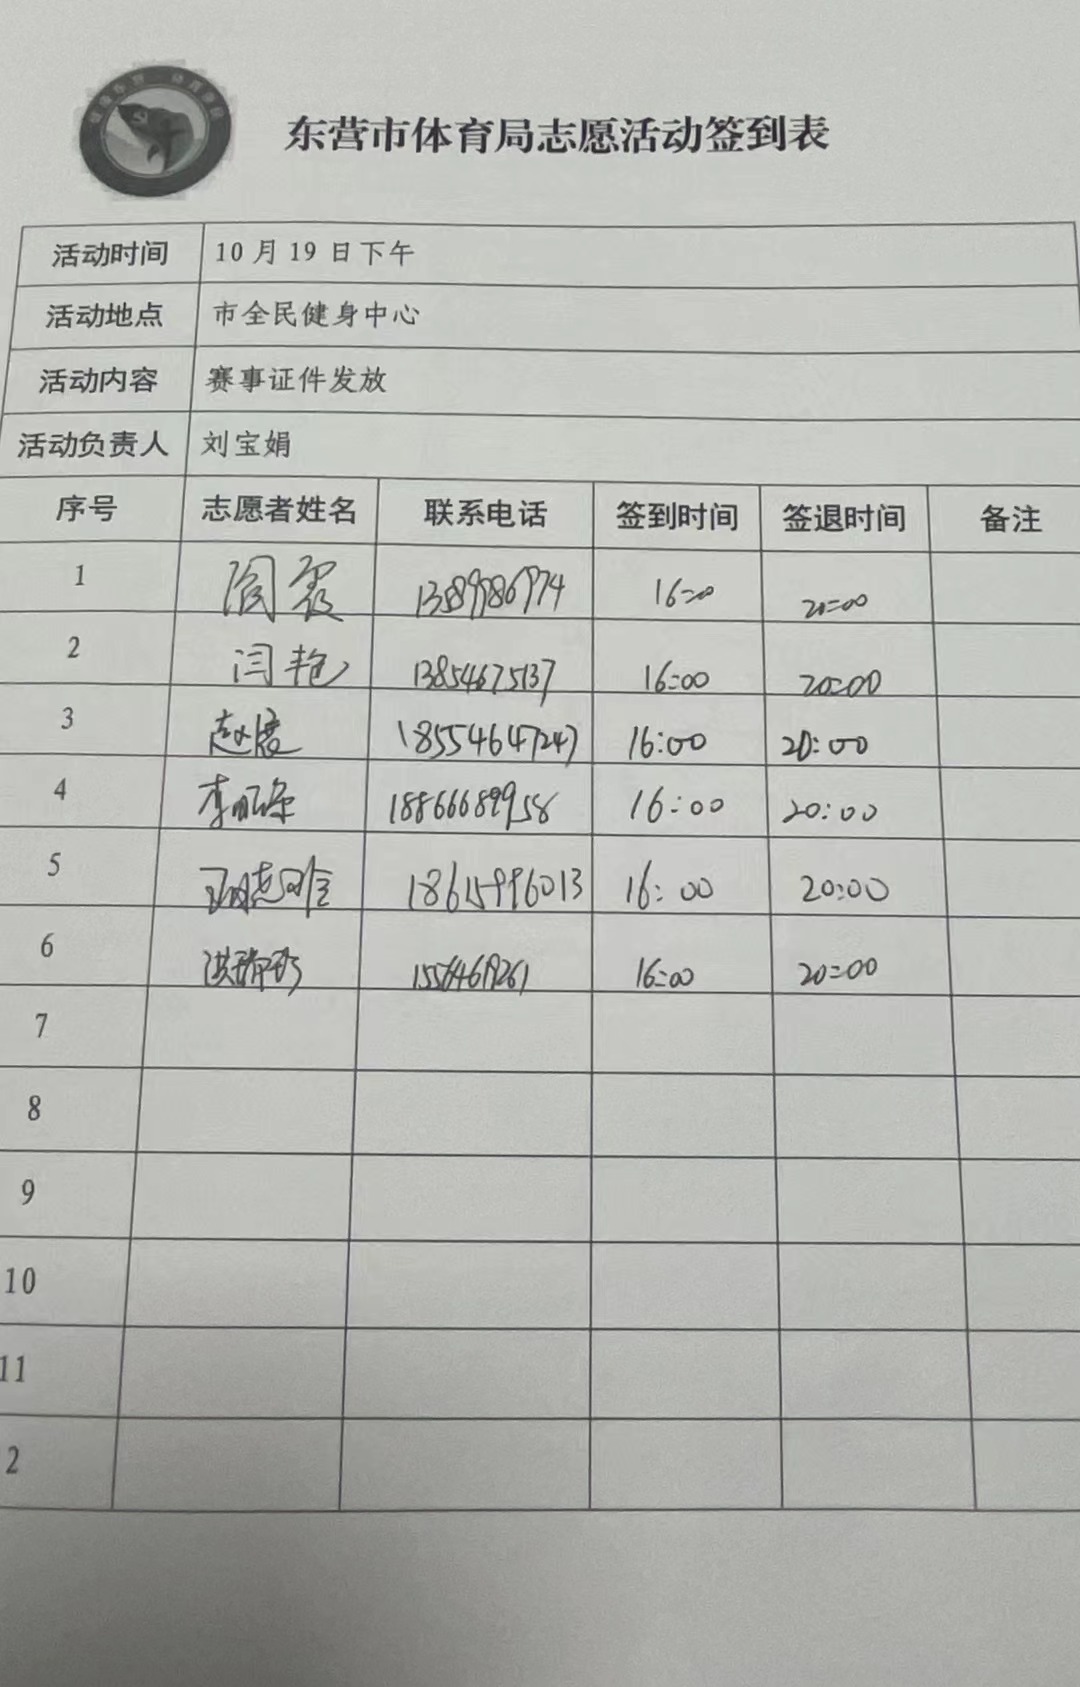 东营市体育局志愿活动签到表
活动时间 10月19日下午
活动地点 市全民健身中心
活动内容 赛事证件发放
活动负责人 刘宝娟
序号 志愿者姓名 联系电话 签到时间 签退时间 备注
1 阎霞 16:00 20:00
2 闫艳 13854675137 16:00 20:00
3 18554647247 16:00 20:00
4 18866689958 16:00 20:00
5 18615996013 16:00 20:00
6 16:00 20:00
7
8
9
10
11
2